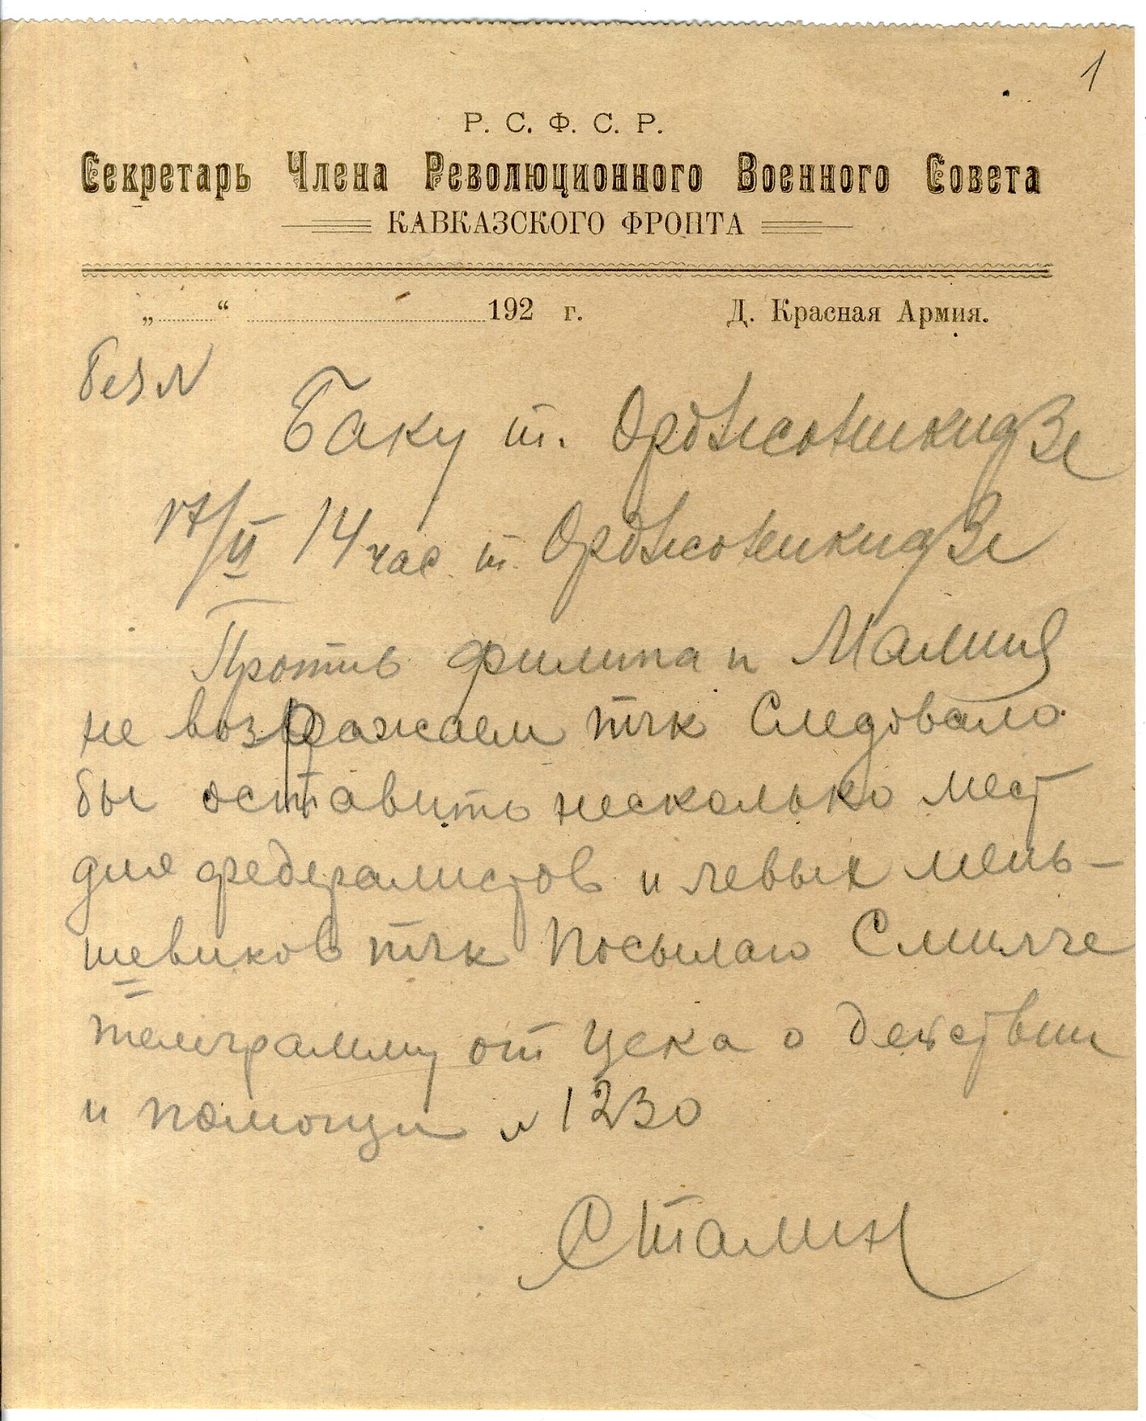 1
Р. С. Ф. С. Р.
Секретарь Члена Революционного Военного Совета
КАВКАЗСКОГО ФРОНТА
„ “ 192 г. Д. Красная Армия.
без N
Баку т. Орджоникидзе
17/II 14 час. т. Орджоникидзе
Против Филипа и Мамия
не возражаем тчк Следовало
бы оставить несколько мест
для федералистов и левых мень-
шевиков тчк Посылаю Смилге
телеграмму от Цека о действии
и помощи N 1230
Сталин